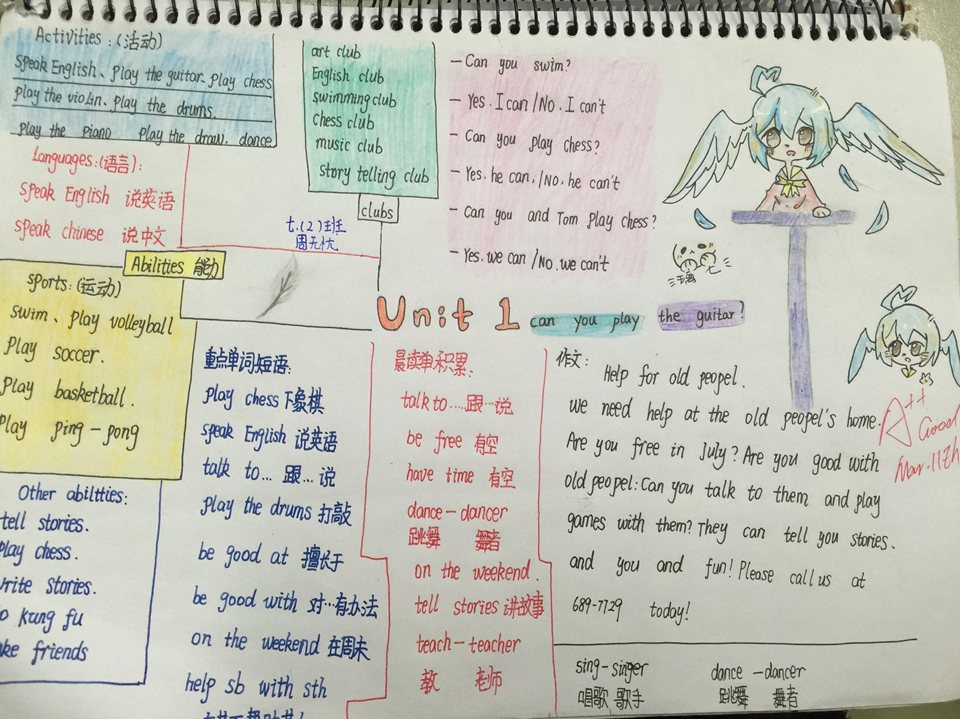 Activities:(活动)
speak English、play the guitar、play chess
play the violin、play the drums.
play the piano play the draw. dance
Languages:(语言):
speak English 说英语
speak chinese 说中文
Abilities 能力
sports:(运动)
swim、play volleyball
Play soccer.
Play basketball.
Play ping-pong
Other abiltties:
tell stories.
play chess.
write stories.
do kung fu
make friends
art club
English club
swimming club
Chess club
music club
story telling club
clubs
七.(2)班
周无忧
—Can you swim?
—Yes.I can/No.I can't
—Can you play chess?
—Yes.he can,/No.he can't
—Can you and Tom play chess?
—Yes.we can/No.we can't
Unit 1 can you play the guitar?
重点单词短语:
play chess下象棋
speak English 说英语
talk to… 跟…说
play the drums 打敲
be good at 擅长于
be good with 对…有办法
on the weekend 在周末
help sb with sth
晨读单积累:
talk to……跟…说
be free 有空
have time 有空
dance—dancer
跳舞 舞者
on the weekend.
tell stories 讲故事
teach—teacher
教 老师
作文:
Help for old peopel.
we need help at the old peopel's home.
Are you free in July? Are you good with
old peopel:Can you talk to them and play
games with them? They can tell you stories、
and you and fun! Please call us at
689-7729 today!
sing-singer dance—dancer
唱歌 歌手 跳舞 舞者
A++
Good
Mar.11th